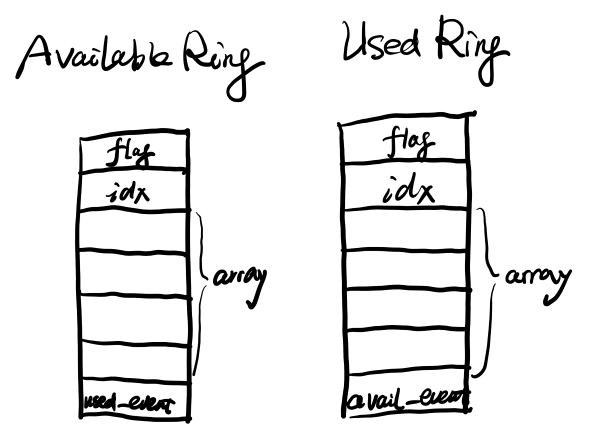 Available Ring
flag
idx
array
used_event
Used Ring
flag
idx
array
avail_event